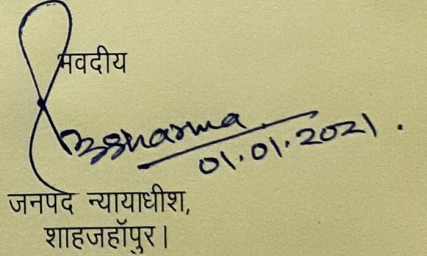 भवदीय
BSharma
01.01.2021.
जनपद न्यायाधीश,
शाहजहॉपुर।